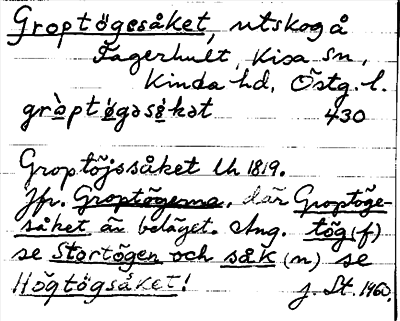 Groptögesåket, utskog å
Fagerhult, Kisa sn,
Kinda hd, Östg. l.
gròpt ø̀gəså̀kət 430
Groptöjssåket Uh 1819.
Jfr. Groptögerna, där Groptöge-
såket är beläget. Ang. tög (f)
se Stortögen och såk (n) se
Högtögsåket! J. St. 1960.